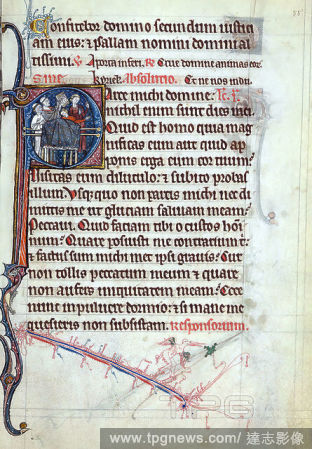 Confitebor domino secundum iusticiam eius: & psallam nomini domini altissimi.
A porta inferi. Erue domine animas eor.
Absolutio. Et ne nos indu.
Parce michi domine:
nichil enim sunt dies mei
Quid est homo quia magnificas eum aut quid apponis erga eum cor tuum:
Visitas eum diluculo: & subito probas
illum. Usquequo non parcis michi nec dimittis me ut glutiam salivam meam:
Peccavi. Quid faciam tibi o custos
Quare posuisti me contrarium t.
& factus sum michi met ipsi gravis: Cur
non tollis peccatum meum & quare
non aufers iniquitatem meam: Ecce
nunc in pulvere dormio: & si mane me
quesieris non subsistam. Responsorium.
TPG
www.tpgnews.com/ 達志影像